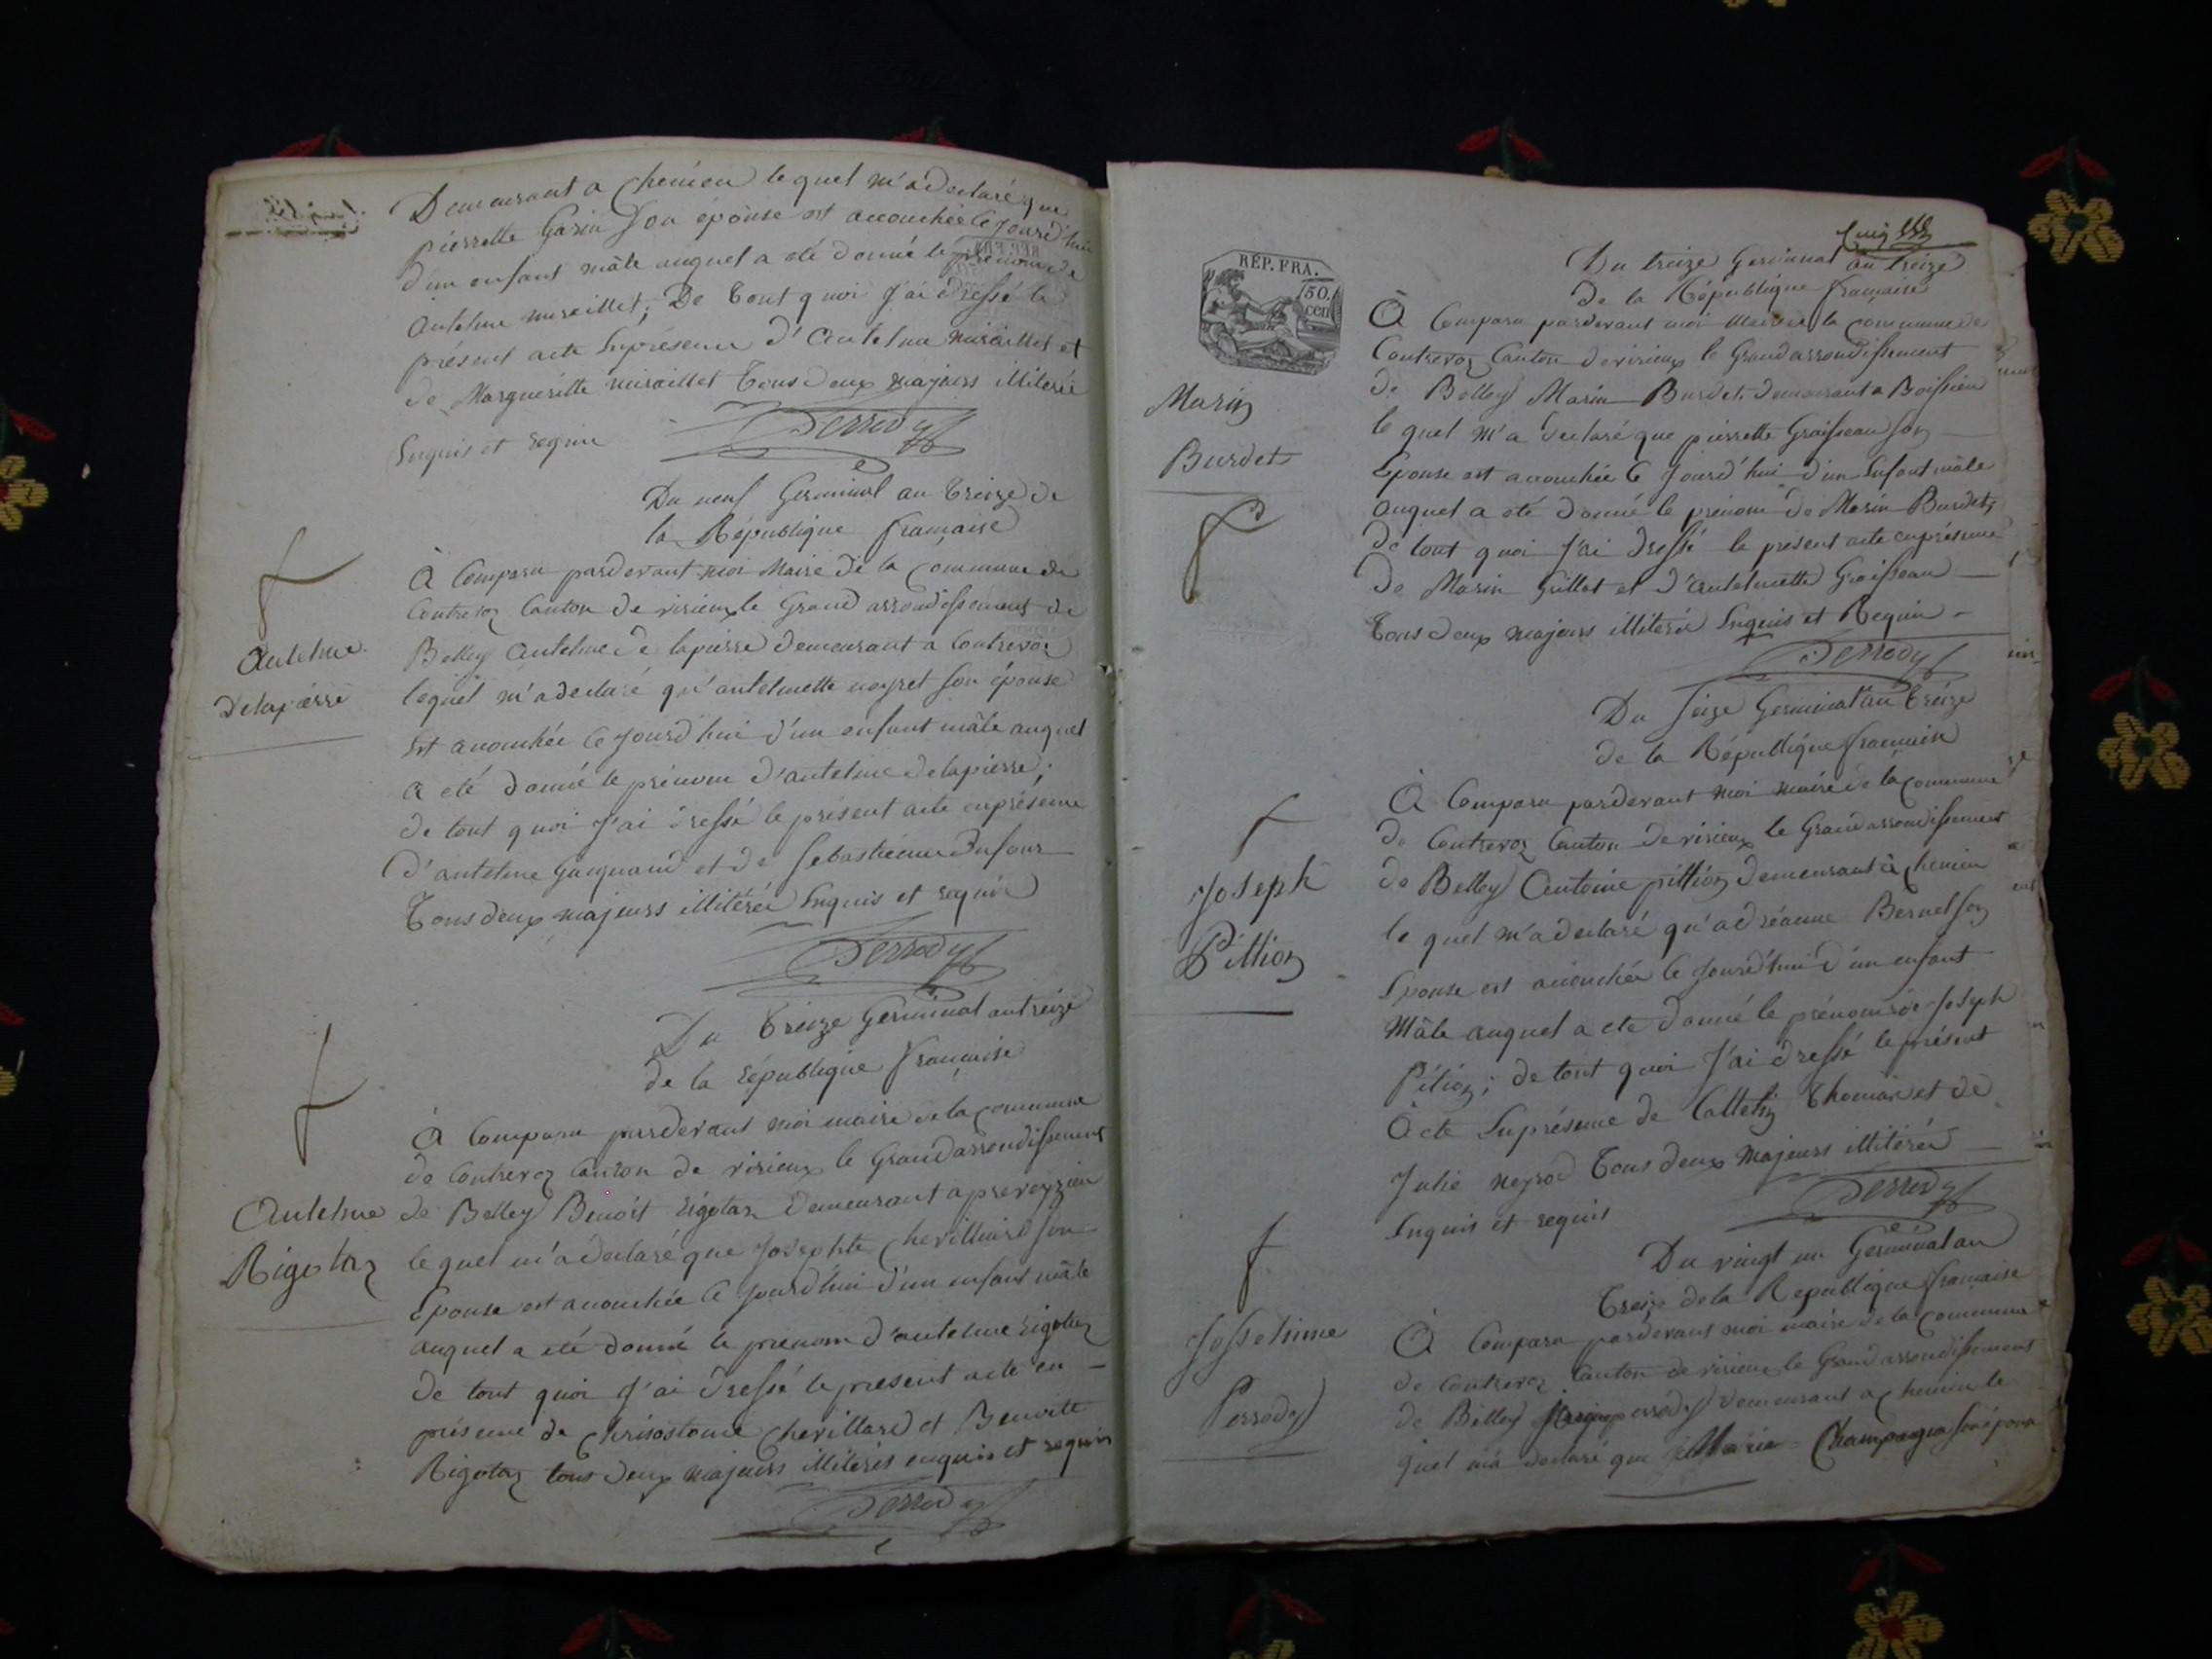 Demeurant a Chemieu le quel m'a declaré que
pierrette Garin son épouse est acouchée Cejourd'hui
d'un enfant mâle auquel a eté donné le prenom de
Antelme miraillet; De tout quoi J'ai dressé le
présent acte Enprésence d'Antelme miraillet et
de Marguéritte miraillet tous deux majeurs illiterés
Enquis et requis
Perrody
Du neuf Germinal an treize de
la République française
A Comparu pardevant moi Maire de la Commune de
Contrevoz Canton de virieux le Grand arrondissement de
Belley Antelme De lapierre demeurant a Contrevoz
lequel m'a declaré qu'antelmette noyret son épouse
Est acouchée Ce jourd'hui d'un enfant mâle auquel
a eté donné le prénom d'antelme delapierre;
de tout quoi J'ai dressé le présent acte enprésence
d'antelme Guignard et de Sebastienne Dufour
tous deux majeurs illitérés Enquis et requis
Perrody
Antelme
Delapierre
Du treize Germinal an treize
de la république française
A Comparu pardevant moi maire de la Commune
de Contrevoz Canton de virieux le Grand arrondissement
de Belley Benoit rigotaz Demeurant a preveyzieu
le quel m'a declaré que Josephte Chevilliard son
Epouse est acouchée Ce jourd'hui d'un enfant mâle
auquel a eté donné le prenom d'antelme rigotaz
de tout quoi J'ai dressé le présent acte en
présence de Chrisostome Chevillard et Benoitte
Rigotaz tous deux majeurs illiterés enquis et requis
Perrody
Antelme
Rigotaz
RÉP. FRA.
50.
cen
Du treize Germinal an treize
de la République française
A Comparu pardevant moi Maire de la Commune de
Contrevoz Canton de virieux le Grand arrondissement
de Belley Marin Burdet demeurant a Boissieu
le quel m'a declaré que pierrette Graisseau son
Epouse est acouchée Ce Jourd'hui d'un Enfant mâle
auquel a eté donné le prénom de Marin Burdet;
de tout quoi J'ai dressé le présent acte enprésence
de Marin Gillet et d'Antelmette Groisseau
tous deux majeurs illiterés Enquis et Requis
Perrody
Marin
Burdet
Du Seize Germinal an treize
de la République française
A Comparu pardevant moi maire de la Commune
de Contrevoz Canton de virieux le Grand arrondissement
de Belley Antoine pittion demeurant à Chemieu
le quel m'a declaré qu'adréanne Bernet son
Epouse est acouchée Ce Jourd'hui d'un enfant
Mâle auquel a eté donné le prénom de Joseph
Pition; de tout quoi J'ai dressé le présent
Acte Enprésence de Cattelin Thomas et de
Julie neyrod tous deux Majeurs illitérés
Enquis et requis
Perrody
Joseph
Pittion
Du vingt un Germinal an
treize de la République française
A Comparu pardevant moi maire de la Commune
de Contrevoz Canton de virieux le Grand arrondissement
de Belley perrody demeurant a Chemieu le
quel m'a declaré que Marie Champagne son épouse
Josselmme
Perrody